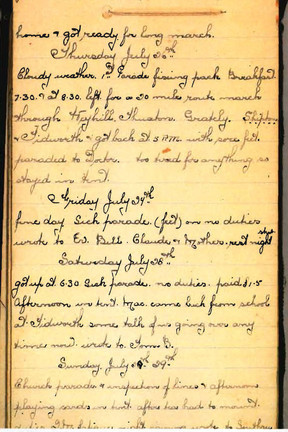 home & got ready for long march.
Thursday July 26th
Cloudy weather. 1st Parade fixing park Breakfast
7.30. & at 8.30. left for a 20 mile route march
through Weyhill, Thruxton. Grately. Shipton
& Tidworth & got back at 3 P.M. with sore feet.
paraded to Doctor. too tired for anything so
stayed in tent.
Friday July 27th
fine day Sick parade. (feet) on no duties
wrote to Ed. Bell. Claude & Mother. rest night
Saturday July 28th
got up at 6.30 Sick parade. no duties. paid $15
afternoon in tent. Mac. came back from school
at Tidworth some talk of us going over any
time now. wrote to Tom B.
Sunday. July 29th
Church parade & inspection of lines & afternoon
playing cards in tent after tea had to mount
wrote to